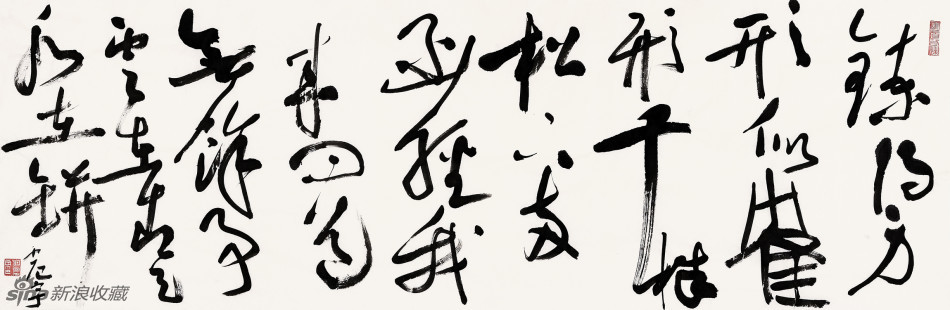 鍊得身
形似鶴
形千株
松下两
函經我
来问道
無餘事
雲在青天
水在缾
sina 新浪收藏